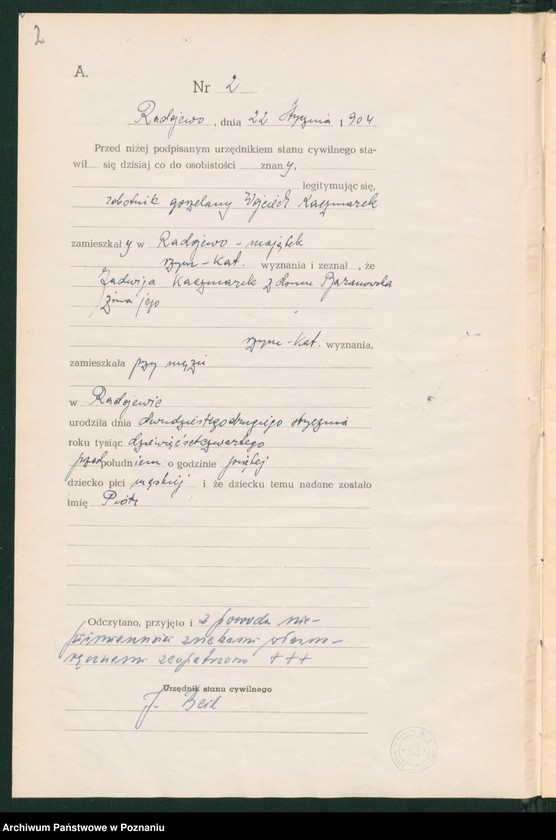 2
A.
Nr 2
Radojewo, dnia 22 Stycznia 1904
Przed niżej podpisanym urzędnikiem stanu cywilnego sta-
wił się dzisiaj co do osobistości znany,
legitymując się,
robotnik gorzelany Wojciech Kaczmarek
zamieszkały w Radojewo - majątek
rzym-kat. wyznania i zeznał, że
Jadwiga Kaczmarek z domu Baranowska
żona jego
rzym-kat. wyznania,
zamieszkała przy mężu
w Radojewie
urodziła dnia dwudziestegodrugiego stycznia
roku tysiąc dziewięćsetczwartego
przedpołudniem o godzinie piątej
dziecko płci męskiej i że dziecku temu nadane zostało
imię Piotr
Odczytano, przyjęto i z powodu nie-
piśmienności znakami własno-
ręcznemi zaopatrzono +++
Urzędnik stanu cywilnego
J. Beil
Archiwum Państwowe w Poznaniu